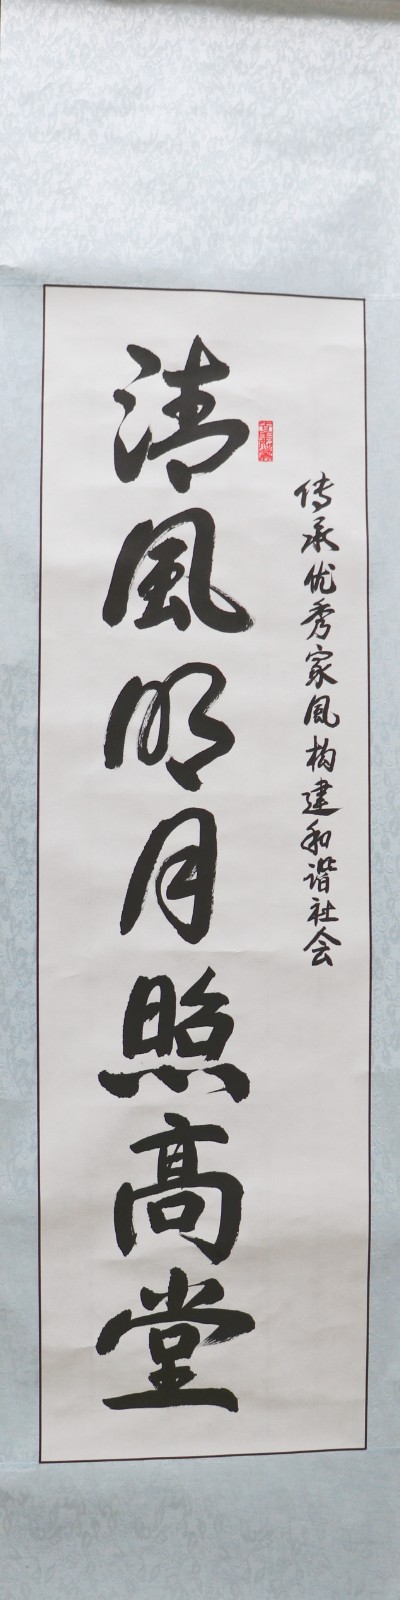 传承优秀家风构建和谐社会
清風明月照高堂